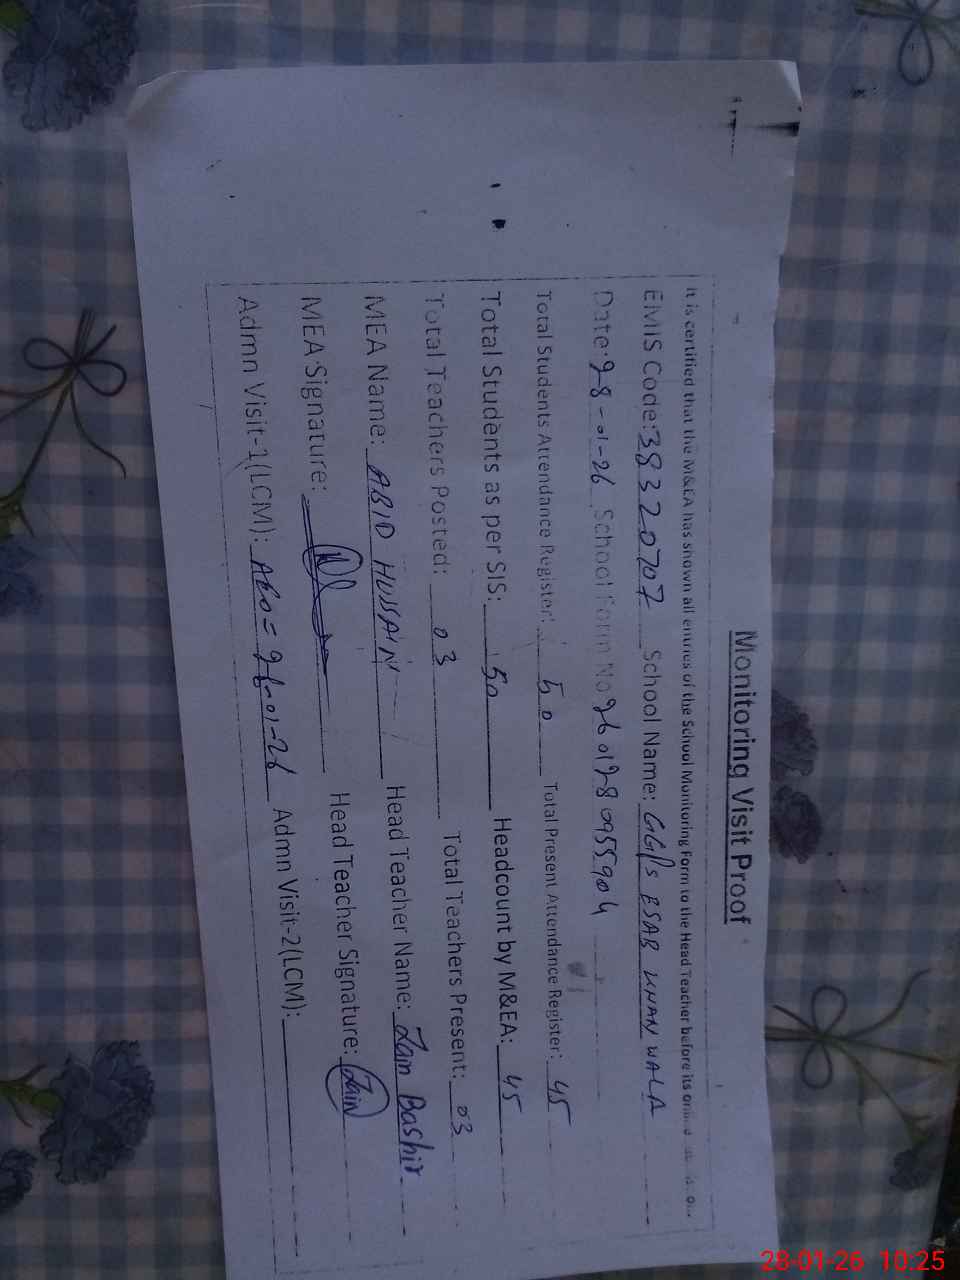 Monitoring Visit Proof
It is certified that the M&EA has shown all entries of the School Monitoring Form to the Head Teacher before its
EMIS Code: 38320707 School Name: GGP/S ESAB KHAN WALA
Date: 28-01-26 School Form No 2601280955904
Total Students Attendance Register: 50 Total Present Attendance Register: 45
Total Students as per SIS: 50 Headcount by M&EA: 45
Total Teachers Posted: 03 Total Teachers Present: 03
MEA Name: ABID HUSSAIN Head Teacher Name: Zain Bashir
MEA Signature: Head Teacher Signature: Zain
Admn Visit-1(LCM): 26-01-26 Admn Visit-2(LCM):
28-01-26 10:25